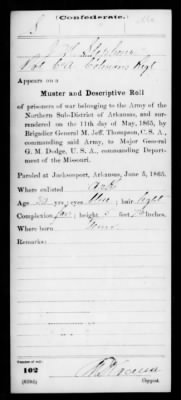 (Confederate.)
S
J W Stephens
Appears on a
Muster and Descriptive Roll
of prisoners of war belonging to the Army of the
Northern Sub-District of Arkansas, and sur-
rendered on the 11th day of May, 1865, by
Brigadier General M. Jeff. Thompson, C. S. A.,
commanding said Army, to Major General
G. M. Dodge, U. S. A., commanding Depart-
ment of the Missouri.
Paroled at Jacksonport, Arkansas, June 5, 1865.
Where enlisted Ark
Age yrs; eyes Blue; hair light
Complexion fair; height 5 feet inches.
Where born
Remarks:
Number of roll:
102
(639b) Copyist.